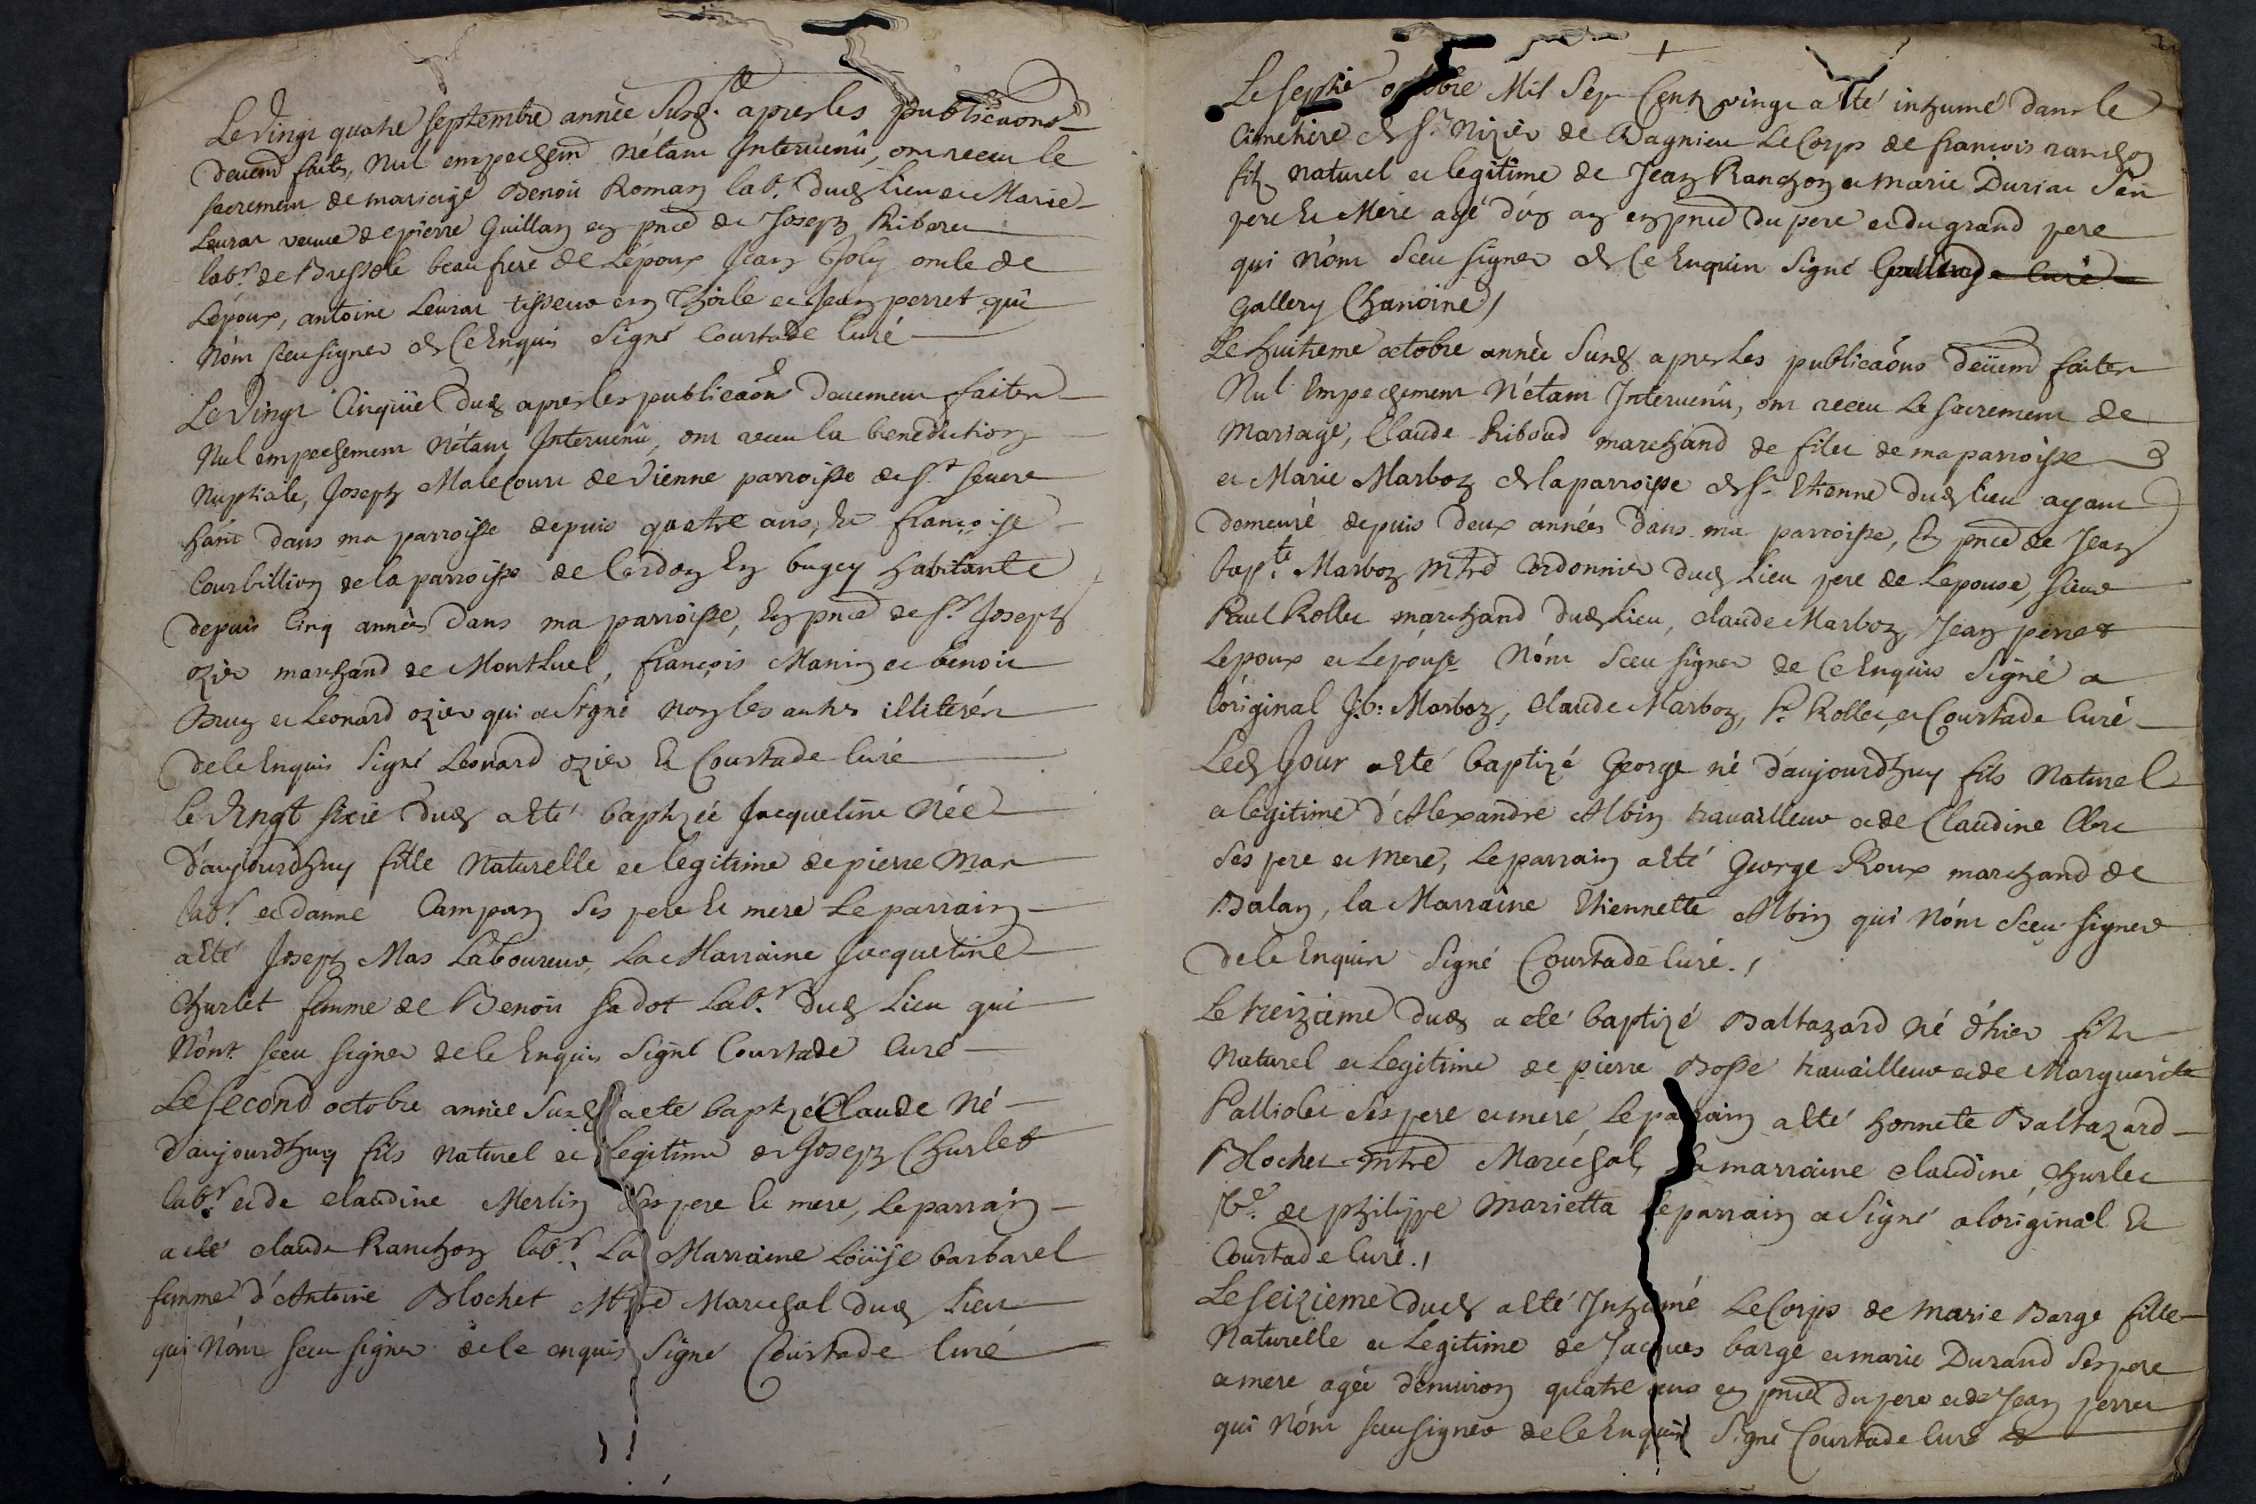 Le Vingt quatre septembre année Susd.te apres les publicaons
deuemt faites, Nul empechemt n'étant Intervenû, ont receu le
sacrement de mariage Benoit Roman lab.r dud lieu et Marie
Leurat veuve de pierre Guillan en pnce de Joseph Riberet
lab.r de Bressole beaufrere de L'époux Jean Joly oncle de
L'époux, antoine Leurat tisseur en Thoile et Jean perret qui
N'ont sceu signer de Ce Enquis Signé Courtade Curé
Le Vingt Cinqüie dud apres les publicaons deuement faites
Nul empechement N'étant Intervenû, ont receu la benediction
Nuptiale, Joseph Malecourt de Vienne parroisse de St severe
hant dans ma parroisse depuis quatre ans, Et françoise
Courbillion de la parroisse de Cerdon En bugey habitante
depuis Cinq années Dans ma parroisse, En pnce de Sr Joseph
ozier marchand de Montluel, françois Manin et benoit
Bruy et Leonard ozier qui a Signé Non les autres illiterés
de Ce Enquis Signé Leonard ozier Et Courtade Curé
le Vingt sixie dud a Eté baptizée Jacqueline Née
d'aujourdhuy fille Naturelle et legitime de pierre Mas
lab.r et d'anne Campan Ses pere Et mere Le parrain
a Eté Joseph Mas Laboureur, La Marraine Jacqueline
Churlet femme de Benoit sadot Lab.r dud Lieu qui
N'ont sceu signer de Ce Enquis Signé Courtade Curé
Le second octobre année Susd a eté baptizé Claude Né
d'aujourdhuy fils naturel et Legitime de Joseph Churlet
lab.r et de claudine Merlin Ses pere Et mere, Le parrain
a eté claude Ranchon lab.r, La Marraine Loüise barbarel
femme d'Antoine Blochet Mtre Marechal dud Lieu
qui N'ont sceu signer de Ce enquis Signé Courtade Curé
Le septie octobre Mil Sep Cent vingt a Eté inhumé dans le
Cimetiere de St Nizier de Dagnieu Le Corps de francois ranchon
fils naturel et legitime de Jean Ranchon et Marie Duriat Ses
pere Et Mere agé d'un an en pnce du pere et du grand pere
qui N'ont Sceu signer de Ce Enquis Signé Curé
Gallery Chanoine /
Le huitieme octobre année Susd apres Les publicaons deüemt faites
Nul Empechement N'étant Intervenû, ont receu Le sacrement de
Mariage, Claude Riboud marchand de filet de ma parroisse
et Marie Marboz de la parroisse de St Etienne dud lieu ayant
demeuré depuis deux années dans ma parroisse, En pnce de Jean
bap.te Marboz Mtre Cordonnier dud Lieu pere de Lepouse, sieur
Paul Rollet marchand dud Lieu, claude Marboz, Jean perret
Lepoux et Lepouse N'ont Sceu signer de Ce Enquis Signé a
l'original J.b. Marboz, claude Marboz, P. Rollet, et Courtade Curé
Led Jour a Eté baptizé George né d'aujourdhuy fils Naturel
et legitime d'Alexandre Albin travailleur et de Claudine
Ses pere et Mere, Le parrain a Eté George Roux marchand de
Balan, la Marraine Etiennette Albin qui N'ont Sceu signer
de Ce Enquis Signé Courtade Curé. /
Le treizieme dud a eté baptizé Baltazard né d'hier fils
Naturel et Legitime de pierre Bosse travailleur et de Marguerite
Palliolet Ses pere et mere, Le parrain a Eté honnete Baltazard
Blochet Mtre Maréchal, La marraine claudine Churlet
Ve. de philippe Marietta Le parrain a Signé a l'original Et
Courtade Curé. /
Le seizieme dud a Eté Inhumé Le Corps de Marie Barge fille
Naturelle et Legitime de Jacques barge et marie Durand Ses pere
et mere agée d'environ quatre ans en pnce du pere et de Jean perret
qui N'ont sceu signer de Ce Enquis Signé Courtade Curé